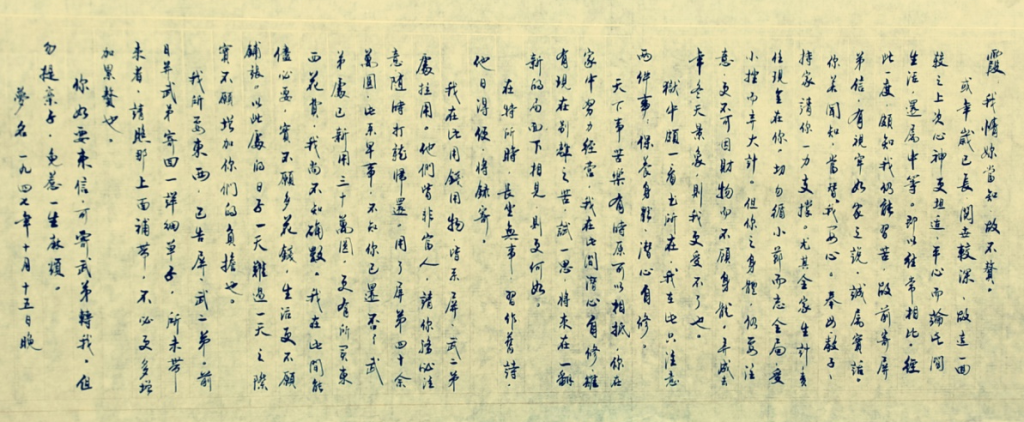 霞 我情妳當知 故不贅。
或年歲已長、閱世較深、故這一回
較之上次心神更坦逹、平心而論、此間
生活、還屬中等。即以往常相比、輕
此一度、頗知我仍能習苦、故前寄屏
弟信、有視牢如家之說、誠屬實話。
你若聞知、當替我安心。養母教子、
持家請你一力支撐。尤其全家生計、責
任現全在你、切勿循小節而忘全局、愛
小擅而辛大計。但你之身體、仍要注
意、更不可因財物而不顧身體。弄成去
年冬天景象、則我更受不了也。
獄中頗一有出所在、我在此只注意
兩件事、保養身體、潛心自修。
天下事苦樂有時原可以相抵、你在
家中努力經營、我在此間潛心自修、雖
有現在別離之苦、試一思、將來在一翻
新的局面下相見、則又何如。
在特所時、長坐無事、習作舊詩、
他日得便、將錄寄。
我在此用錢用物、時系屏、武二弟
處拉用。他們皆非富人、請你務必注
意隨時打蔬歸還。用了屏弟四十余
萬圓、此系早事、不知你已還否？武
弟處已新用三十萬圓、更有所買東
西花費、我尚不知确數。我在此間能
儘必要、實不願多花錢、生活更不願
鋪張。以此處的日子一天難過一天之際
實不願增加你們的負擔也。
我所要東西、已告屏、武二弟。前
日早武弟寄回一詳細單子、所未帶
来者、請照那上面補齐、不必更多增
加累贅也。
你如要來信、可寄武弟轉我、但
勿提亲子、免惹一生麻煩。
夢名 一九四七年十月十五日晚